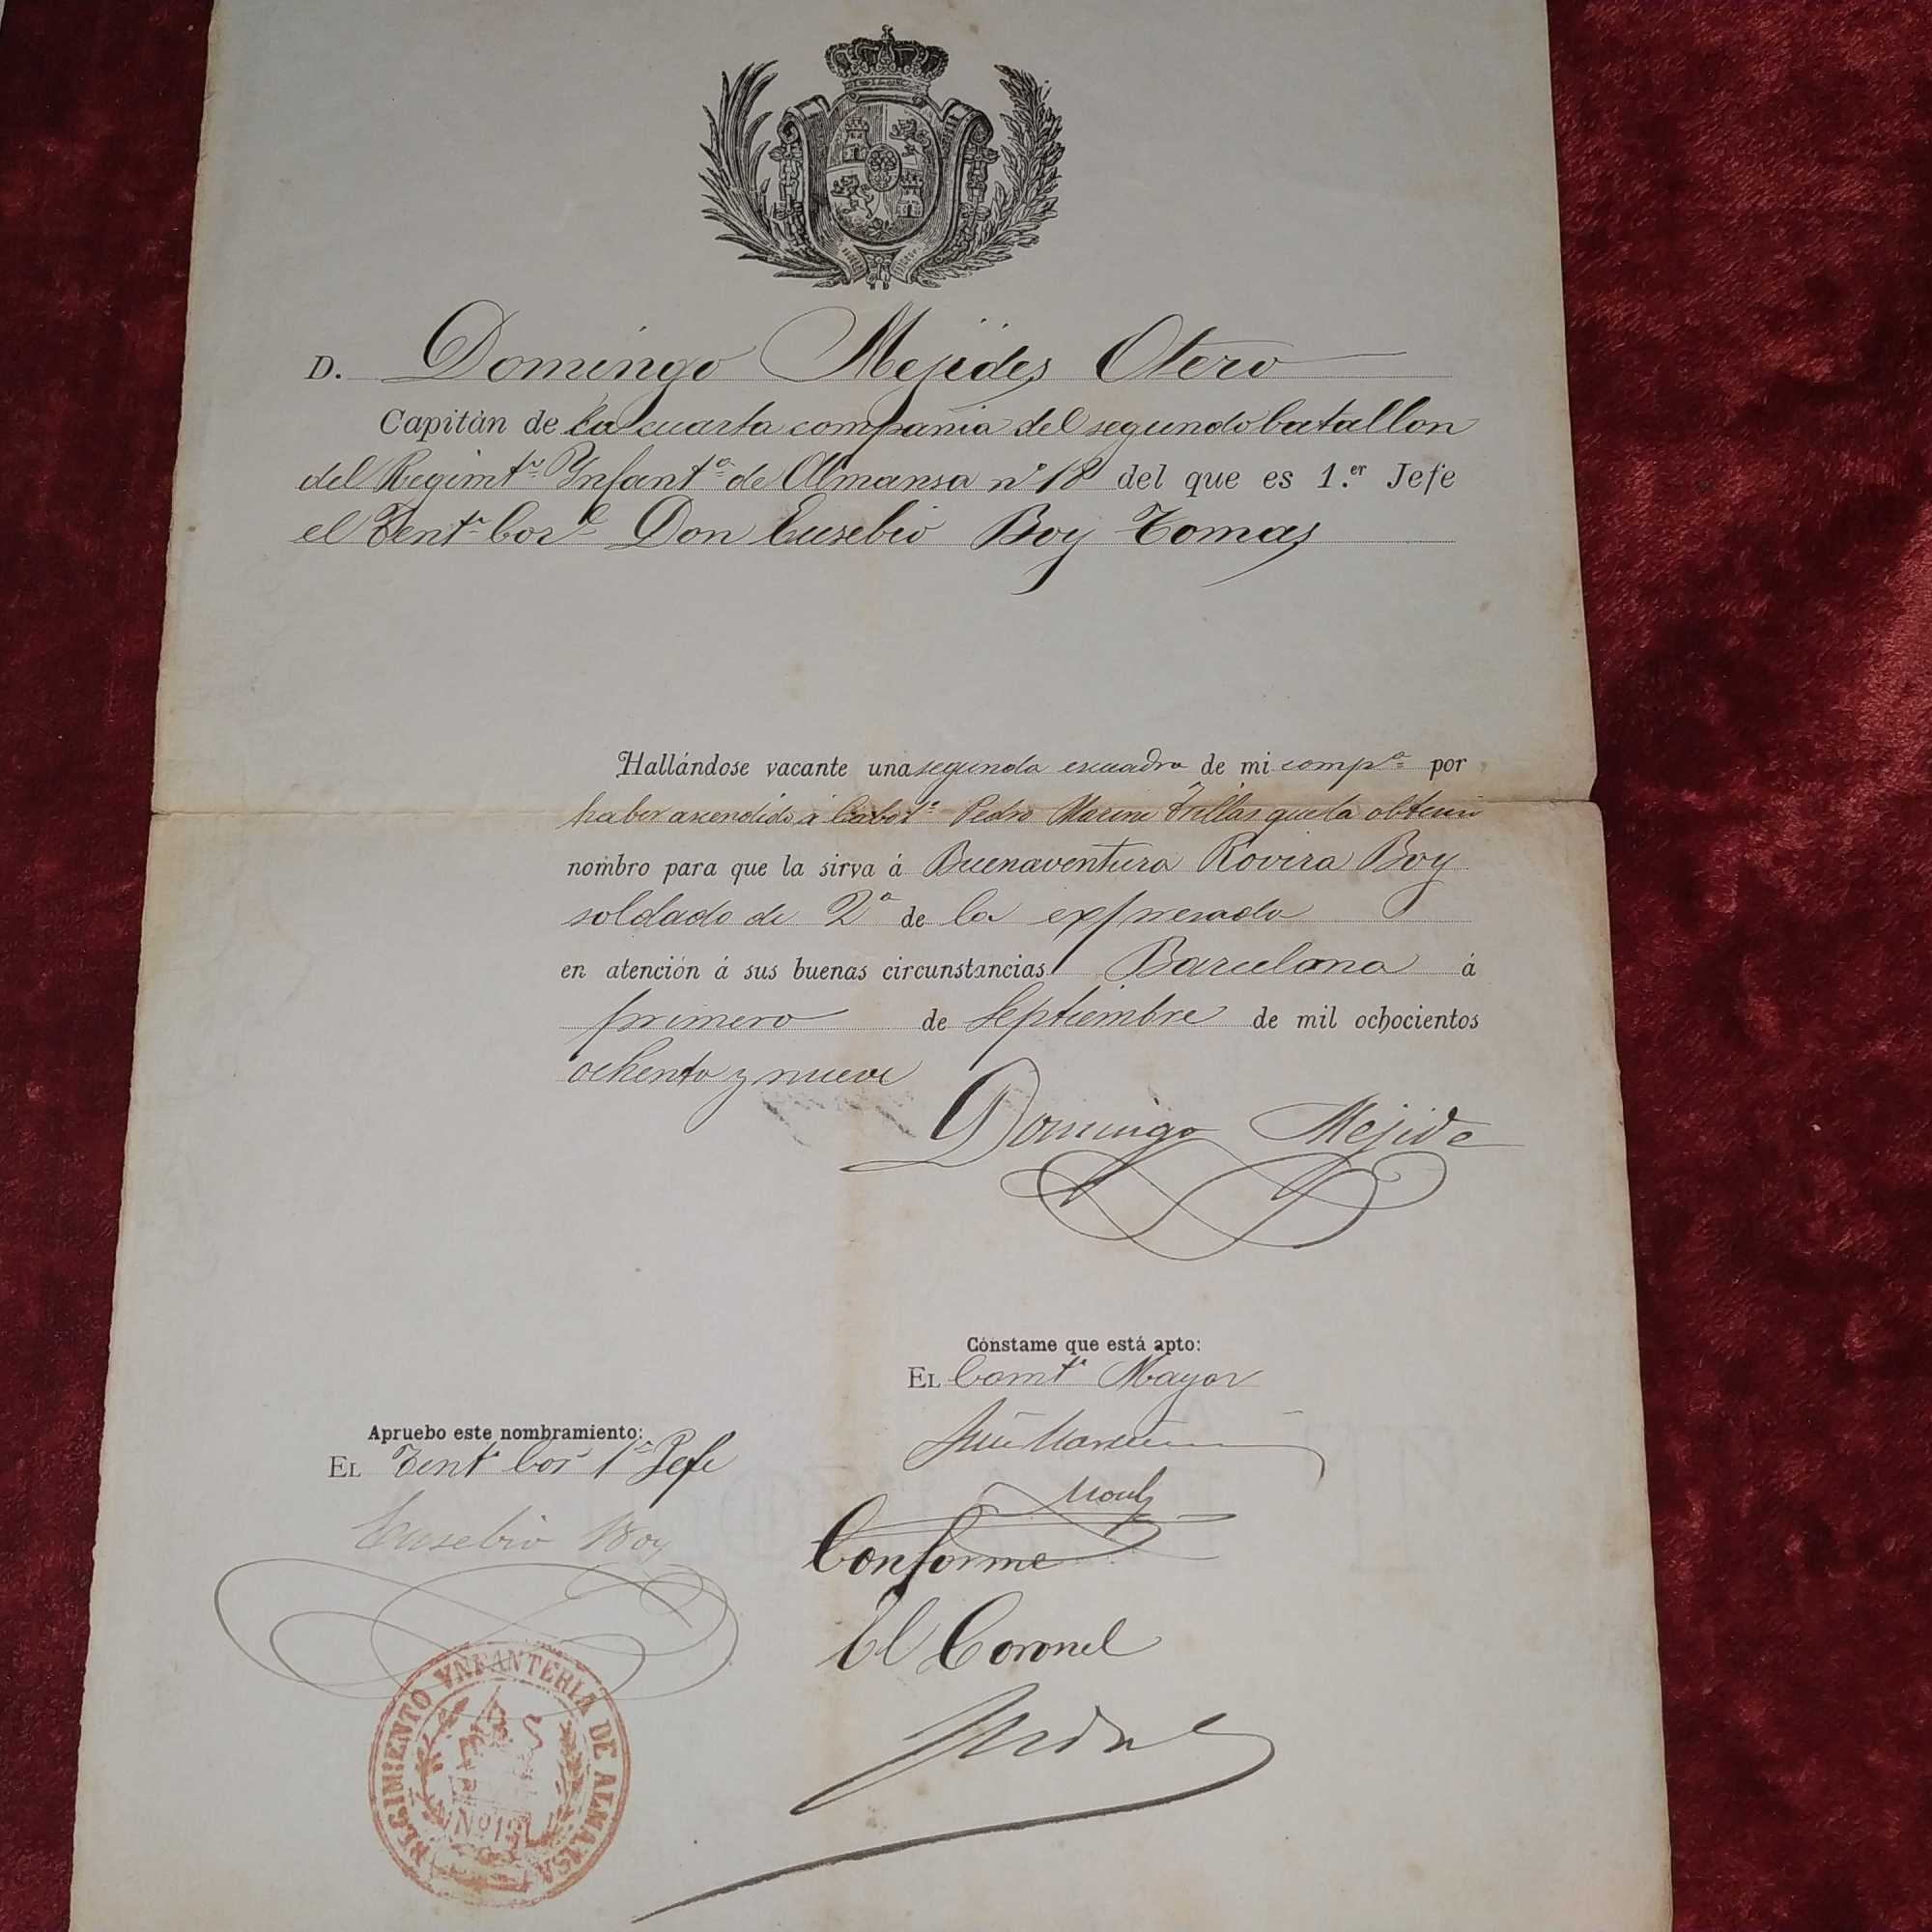 D. Domingo Mejides Otero
Capitàn de la cuarta compañia del segundo batallon
del Regimtº Ynfantª de Almansa nº 18 del que es 1.er Jefe
el Tente Corl Don Eusebio Boy Tomas
Hallándose vacante una segunda escuadra de mi compª por
haber ascendido á Cabo 1º Pedro Marine Trillas que la obtenia
nombro para que la sirva á Buenaventura Rovira Boy
soldado de 2ª de la expresada
en atención á sus buenas circunstancias. Barcelona á
primero de Septiembre de mil ochocientos
ochenta y nueve
Domingo Mejide
Cónstame que está apto:
EL Comte Mayor
Apruebo este nombramiento:
EL Tente Cor 1er Jefe
Eusebio Boy
Conforme
El Coronel
REGIMIENTO YNFANTERIA DE ALMANSA
Nº 18